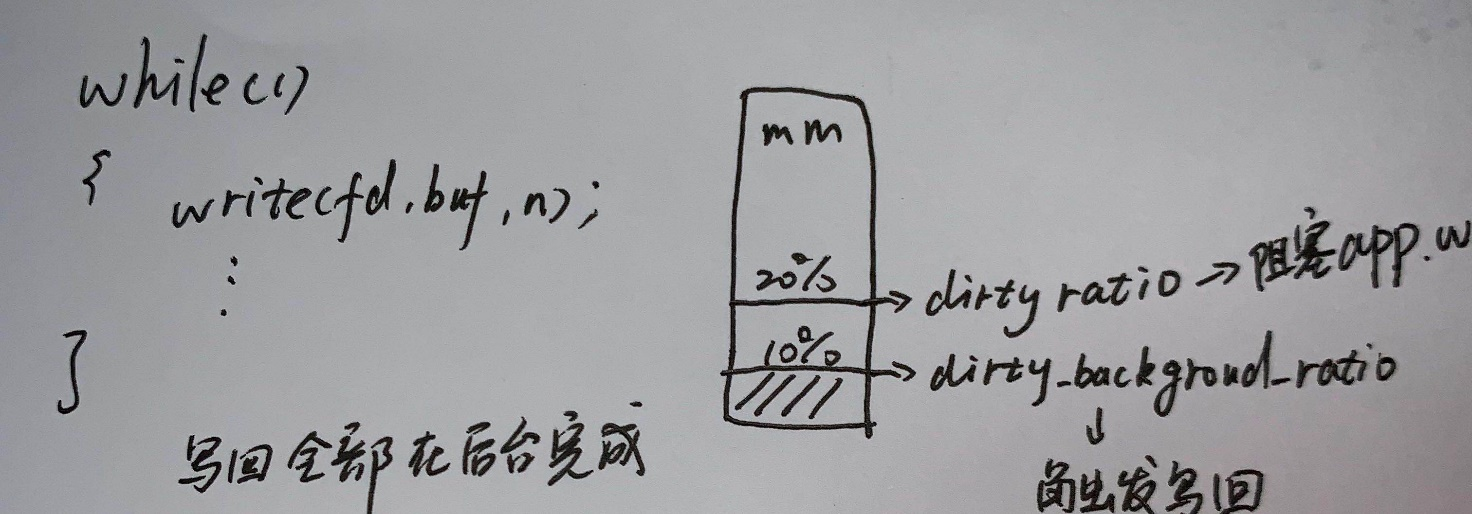 while(1)
{ write(fd,buf,n);
⋮
}
写回全部在后台完成
mm
20%
dirty ratio → 阻塞app.w
10%
dirty_backgroud_ratio
↓
触发写回